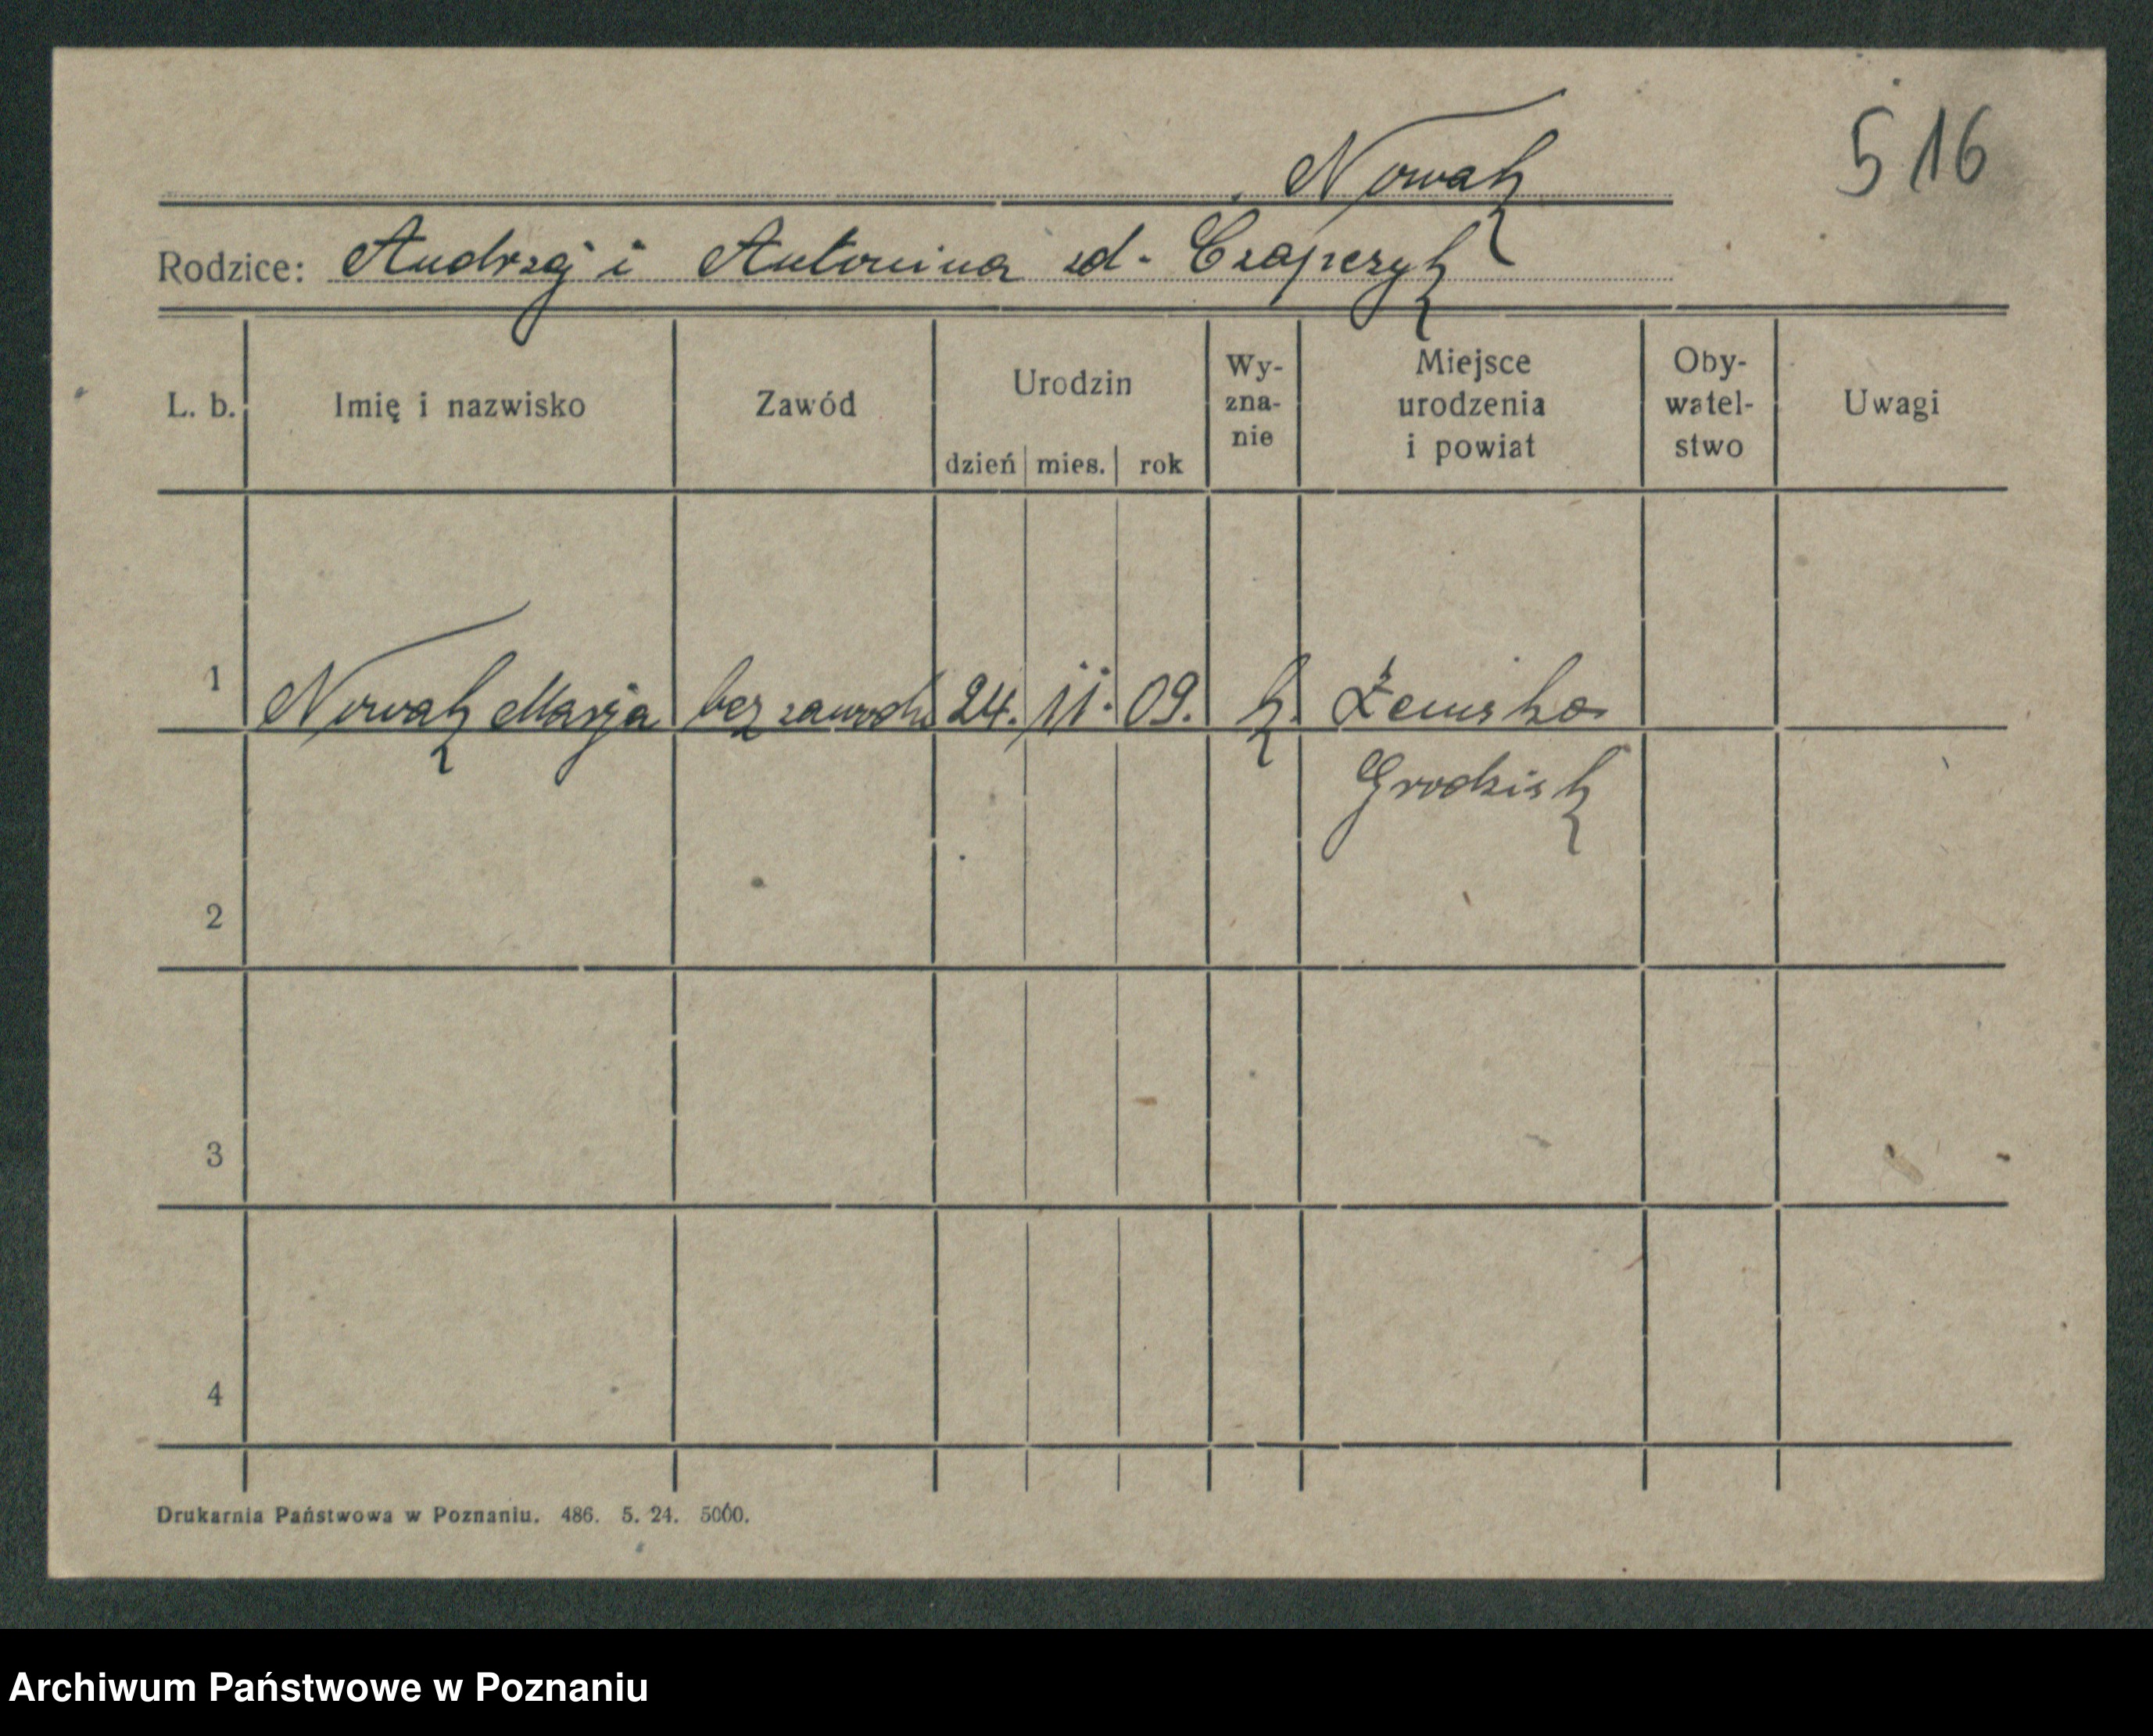 Nowak
516
Rodzice: Andrzej i Antonina zd. Czapczyk
L. b.
Imię i nazwisko
Zawód
Urodzin
dzień mies. rok
Wy-
zna-
nie
Miejsce
urodzenia
i powiat
Oby-
watel-
stwo
Uwagi
1 Nowak Marja bez zawodu 24. 11. 09. k.
Grodzisk
2
3
4
Drukarnia Państwowa w Poznaniu. 486. 5. 24. 5000.
Archiwum Państwowe w Poznaniu